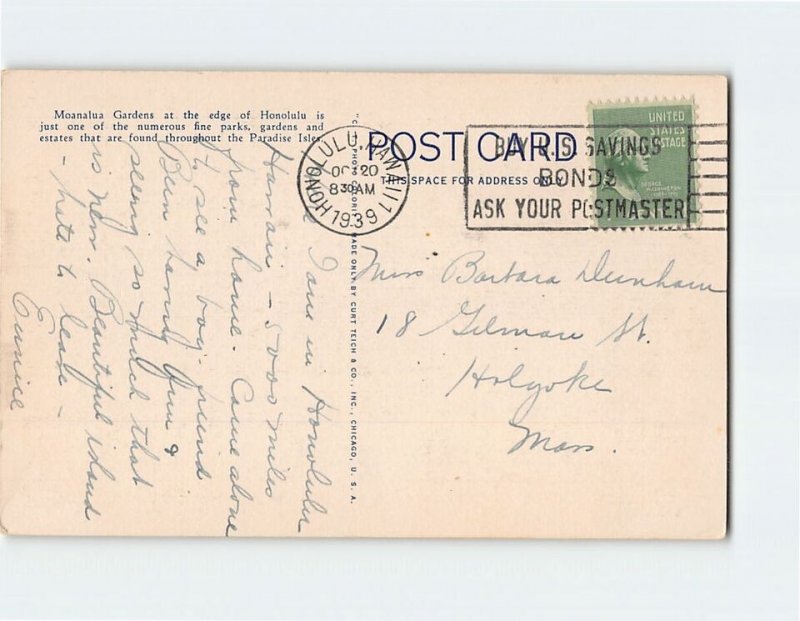 Moanalua Gardens at the edge of Honolulu is
just one of the numerous fine parks, gardens and
estates that are found throughout the Paradise Isles.
I am in Honolulu
Hawaii - 5000 miles
from home. Came alone
to see a boy-friend
Been having fun &
seeing so much that
is new. Beautiful island
- hate to leave -
Eunice
MADE ONLY BY CURT TEICH & CO., INC., CHICAGO, U. S. A.
POST CARD
THIS SPACE FOR ADDRESS ONLY
HONOLULU, HAWAII 1
OCT 20
8 30 AM
1939
BUY U.S. SAVINGS
BONDS
ASK YOUR POSTMASTER
UNITED
STATES
POSTAGE
GEORGE
WASHINGTON
Miss Barbara Dunham
18 Gilman St.
Holyoke
Mass.